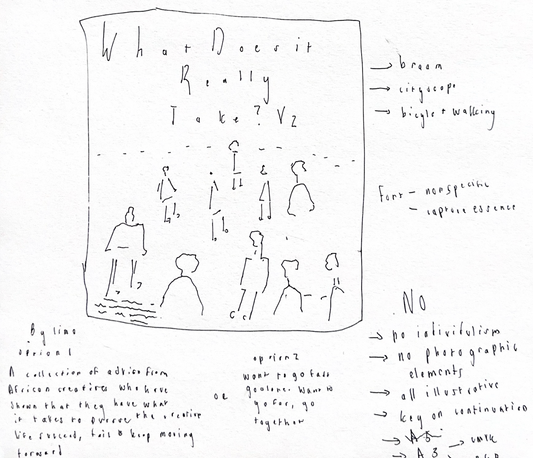 What Does it
Really
Take? V2
→ broom
→ cityscope
→ bicyle + walking
Font – nonspecific
– capture essence
By line
option 1
A collection of advise from
African creatives who have
shown that they have what
it takes to pursue the creative
life succeed, fail & keep moving
forward
OR
option 2
want to go fast
go alone. Want to
go far, go
together
No
→ no individulism
→ no photographic
elements
→ all illustrative
→ key on continuation
→ A5
→ A3